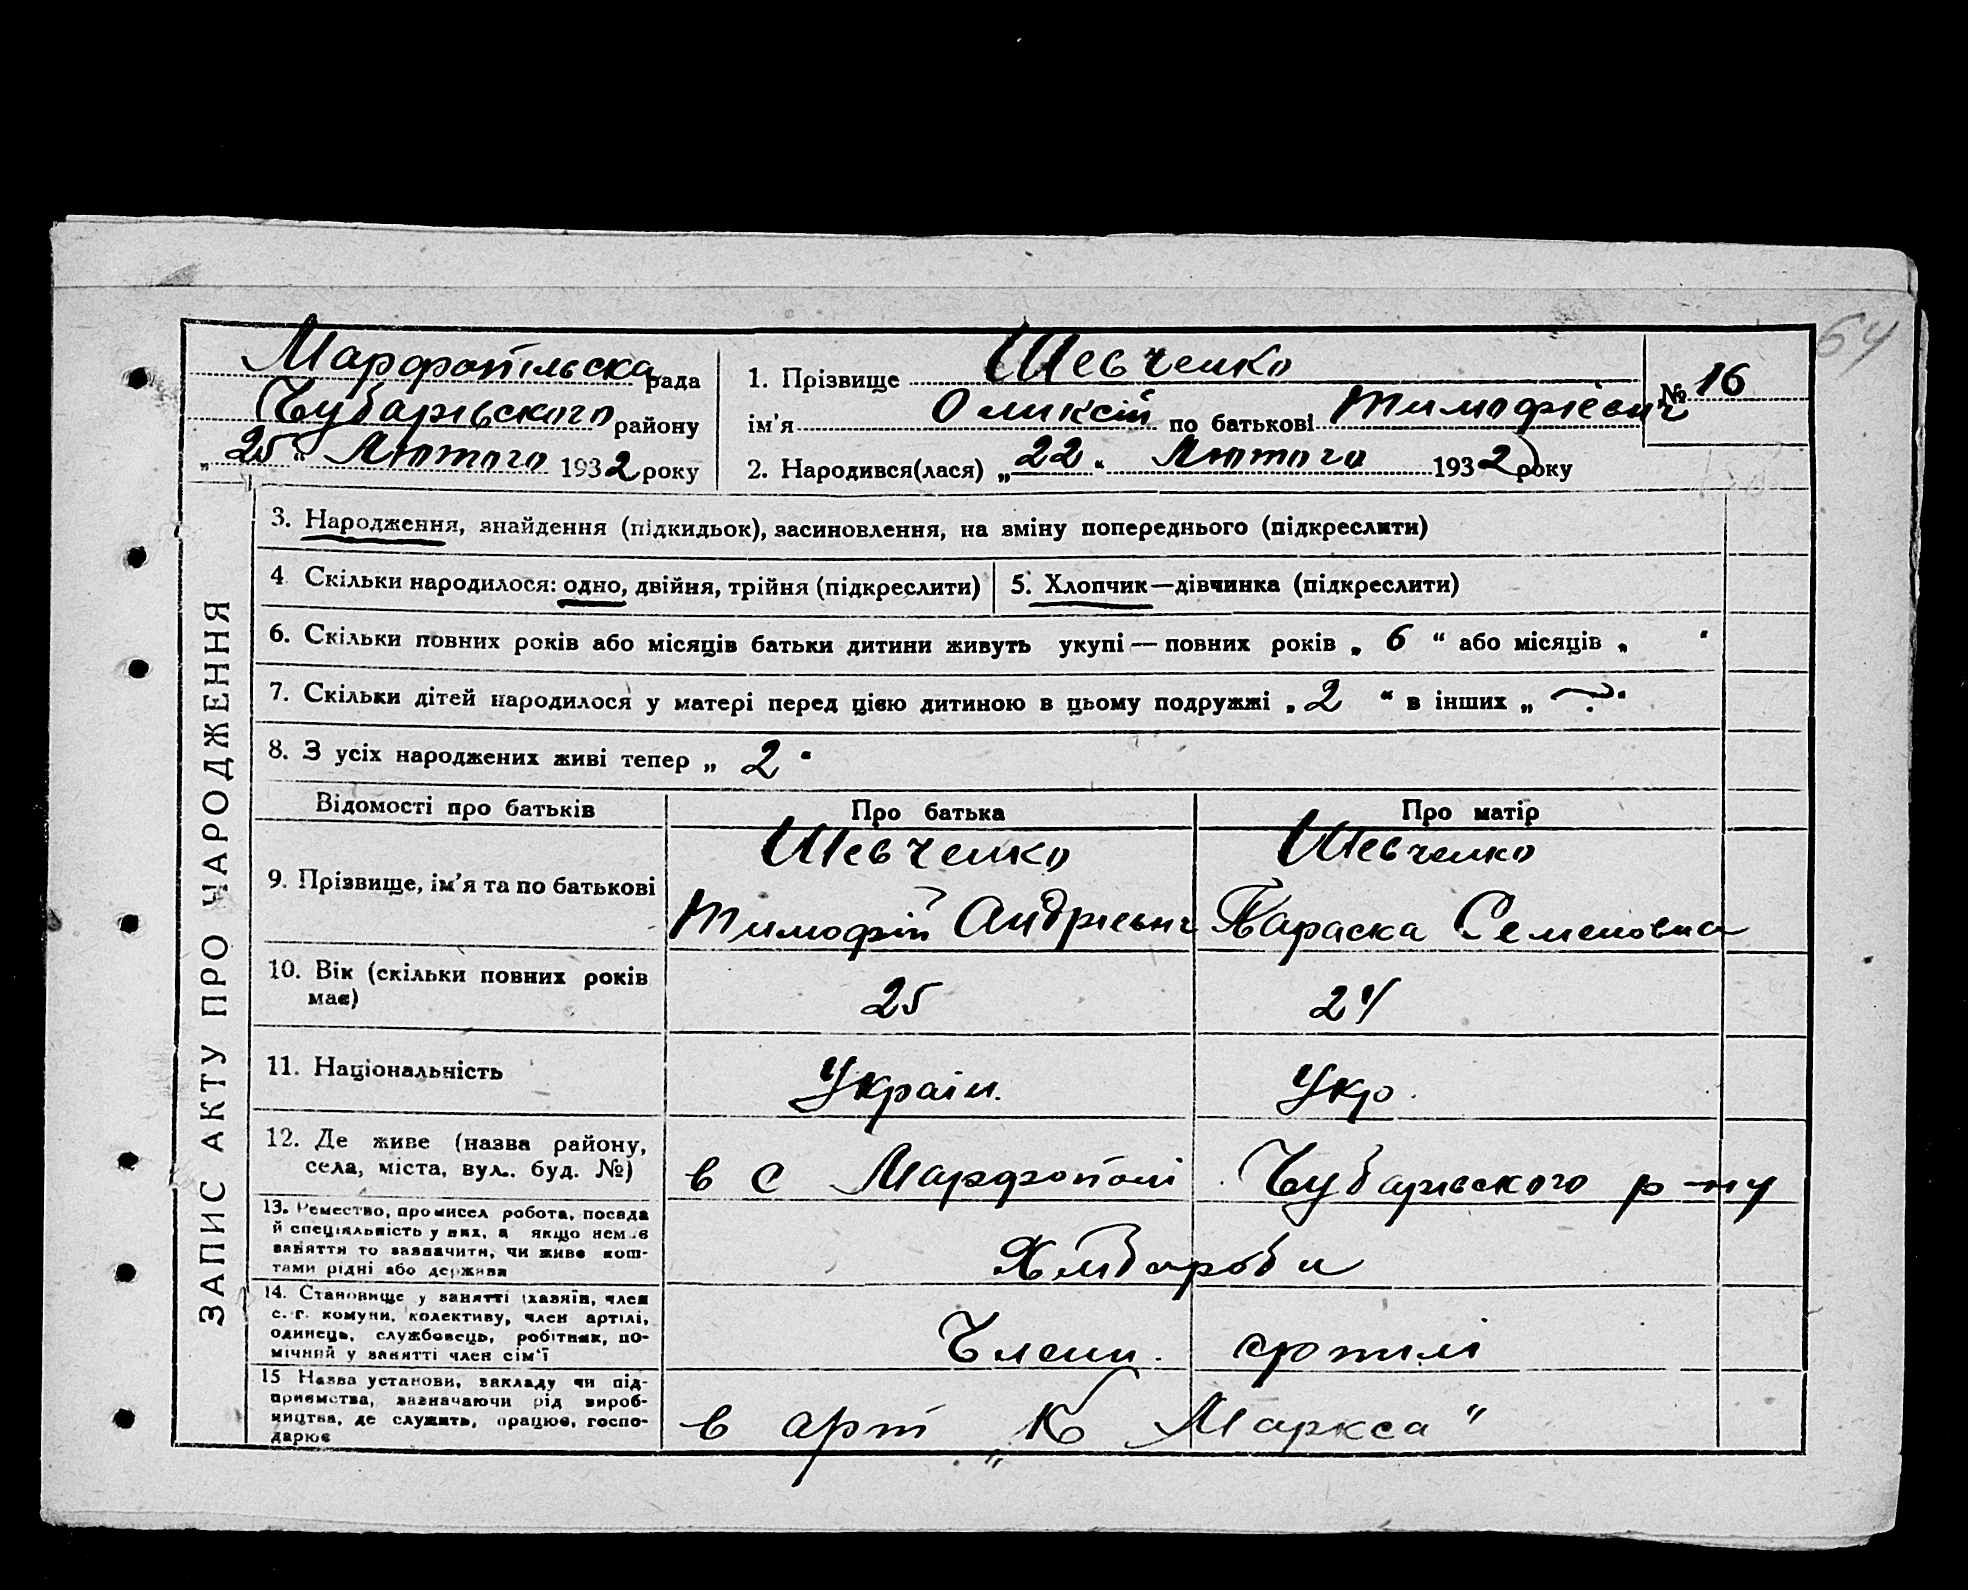 64
Марфопільська рада
Чубарівського району
„25“ Лютого 1932 року
1. Прізвище Шевченко
ім'я Оликсій по батькові Тимофієвич
№ 16
2. Народився(лася) „22“ Лютого 1932 року
ЗАПИС АКТУ ПРО НАРОДЖЕННЯ
3. Народження, знайдення (підкидьок), засиновлення, на зміну попереднього (підкреслити)
4 Скільки народилося: одно, двійня, трійня (підкреслити)
5. Хлопчик—дівчинка (підкреслити)
6. Скільки повних років або місяців батьки дитини живуть укупі — повних років „ 6 “ або місяців „ “
7. Скільки дітей народилося у матері перед цією дитиною в цьому подружжі „ 2 “ в інших „ — “
8. З усіх народжених живі тепер „ 2 “
Відомості про батьків
Про батька
Про матір
9. Прізвище, ім'я та по батькові
Шевченко
Тимофій Андрієвич
Шевченко
Параска Семеновна
10. Вік (скільки повних років
має)
25
24
11. Національність
Україн.
Укр.
12. Де живе (назва району,
села, міста, вул. буд. №)
в с Марфополі Чубарівського р-ну
13. Ремество, промисел робота, посада
й спеціяльність у них, а якщо немає
заняття то зазначити, чи живе кош-
тами рідні або держави
Хліборобы
14. Становище у занятті (хазяїн, член
с.-г. комуни, колективу, член артілі,
одинець, службовець, робітник, по-
мічний у занятті член сім'ї
Члени. артилі
15 Назва установи, закладу чи під-
приємства, зазначаючи рід вироб-
ництва, де служить, працює, госпо-
дарює
в арт „К Маркса“